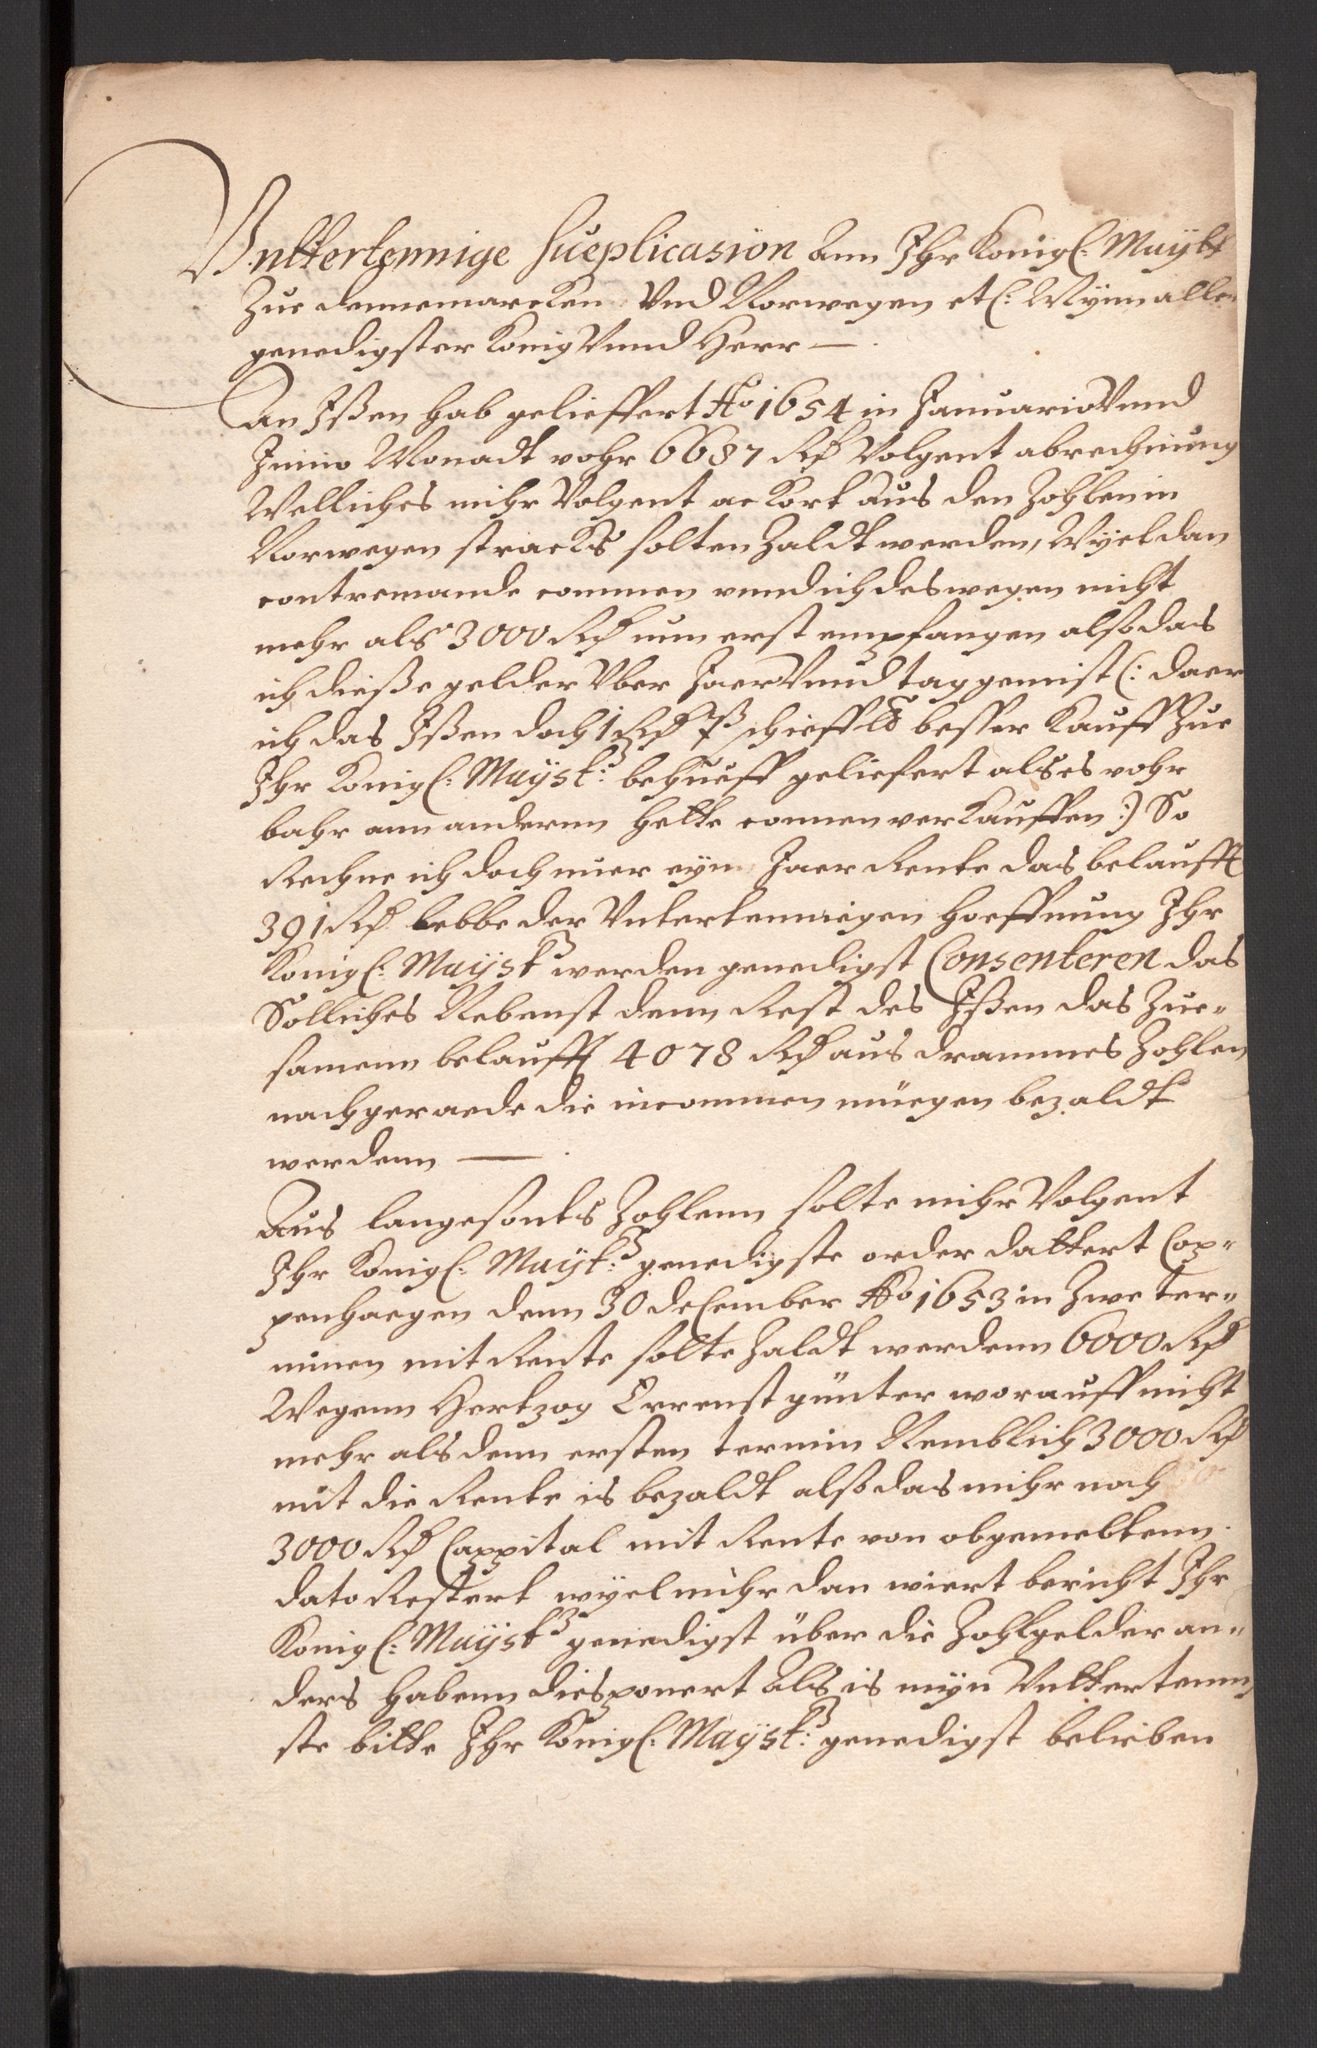 Vnttertennige Sueplicasion Ann Ihr Königl: Mayst
Zue dennemarcken Vnd Norwegen etc: Mynn aller
genedigster König Vnnd Herr —
An Ißen hab gelieffert Ao 1654 in Januario Vnnd
Junio Monadt vohr 6687 Rd Volgent abrechnung
Welliches mihr Volgent ackort aus den Zohlen in
Norwegen stracks solten Zaldt werden, Wyel dan
contremande commen vnnd ich deswegen nicht
mehr als 3000 Rd nun erst empfangen alß das
ich dieße gelder Vber Jaer Vnnd tag gemist (: daer
ich das Ißen doch 1 Rd schieff besser Kauff Zue
Ihr Königl: Mayst: behueff geliefert als es vohr
bahr ann anderenn hette connen verkauffen :) So
Rechne ich doch nuer eyn Jaer Rente das belaufft
391 Rd lebbe der Vntertennigen hoeffnung Ihr
Königl: Mayst: werden genedigst Consenteren das
Solliches Nebenst denn Rest des Ißen das Zue-
samenn belaufft 4078 Rd aus drammes Zohlen
nachgeraede die incommen müegen bezaldt
werdenn —
Aus langesonts Zohlenn solte mihr Volgent
Ihr Königl: Mayst: genedigste order dattert Cop-
penhaegen denn 30 december Ao 1653 in Zwe ter-
minen mit Rente solte Zaldt werdenn 6000 Rd
Wegenn Hertzog Ernst günter worauff nicht
mehr als denn ersten termin Nemblich 3000 Rd
mit die Rente is bezaldt alß das mihr noch
3000 Rd Cappital mit Rente von obgemeltenn
dato Restert wyel mihr dan wiert bericht Ihr
Königl: Mayst: genedigst über die Zohlgelder an-
ders habenn diesponert Als is myn Vnttertenn
ste bitte Ihr Königl: Mayst: genedigst belieben